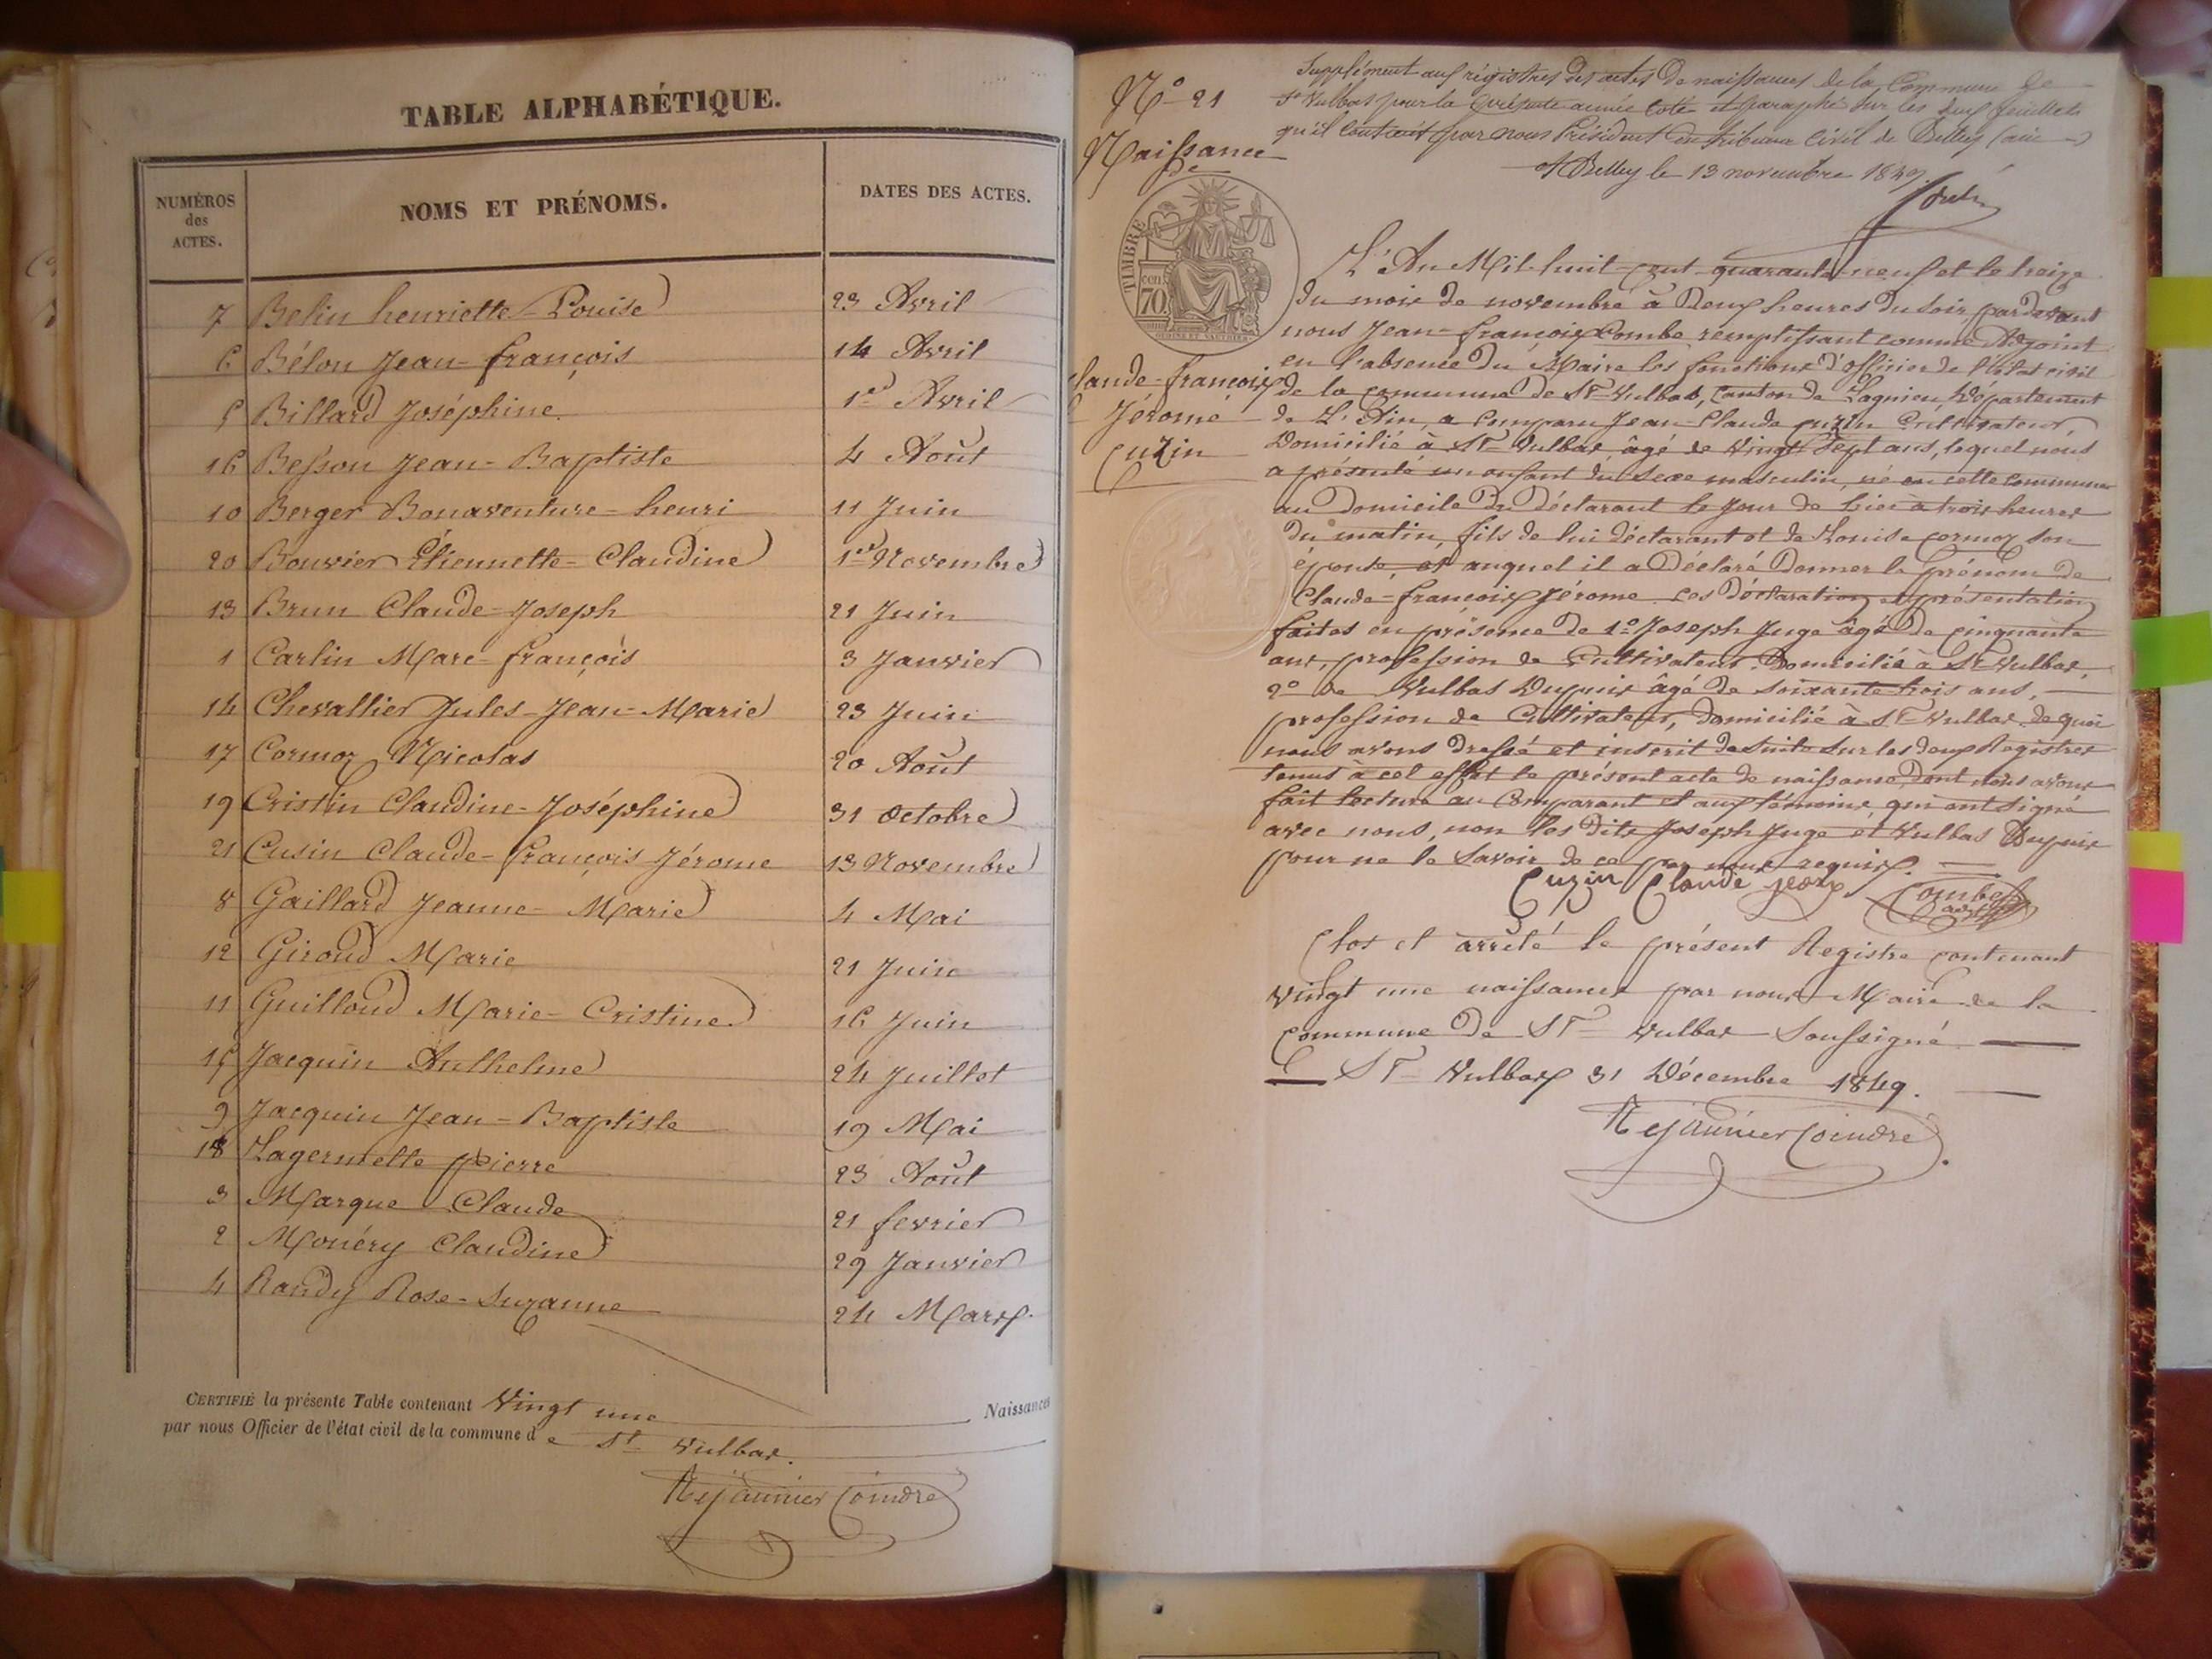 TABLE ALPHABÉTIQUE.
NUMÉROS des ACTES.
NOMS ET PRÉNOMS.
DATES DES ACTES.
7 Belin henriette-Louise 23 Avril
6 Bélon Jean-françois 14 Avril
5 Billard Joséphine. 1er Avril
16 Besson Jean-Baptiste 4 Août
10 Berger Bonaventure-henri 11 Juin
20 Bouvier Étiennette-Claudine 1er Novembre
13 Brun Claude-Joseph 21 Juin
1 Carlin Marc-françois 3 Janvier
14 Chevallier Jules-Jean-Marie 23 Juin
17 Cormoz Nicolas 20 Août
19 Cristin Claudine-Joséphine 31 Octobre
21 Cusin Claude-françois-Jérome 13 Novembre
8 Gaillard Jeanne-Marie 4 Mai
12 Giroud Marie 21 Juin
11 Guilloud Marie-Cristine 16 Juin
15 Jacquin Anthelme 24 Juillet
9 Jacquin Jean-Baptiste 19 Mai
18 Lagermette Pierre 23 Août
3 Marque Claude 21 fevrier
2 Monéry Claudine 29 Janvier
4 Randy Rose-Suzanne 24 Mars.
CERTIFIÉ la présente Table contenant Vingt une Naissances
par nous Officier de l'état civil de la commune de St Vulbas.
Rejaunier Coindre
No 21
Naissance
De
Supplément aux régistres des actes de naissances de la Commune de
St Vulbas pour la présente année coté et paraphé sur les deux feuillets
qu'il contient par nous Président du tribunal Civil de Belley (ain)
A Belley le 13 novembre 1849.
TIMBRE
70
Claude-françois
Jérome
Cuzin
L'An Mil huit-cent-quarante-neuf et le treize
du mois de novembre à Deux heures du soir, pardevant
nous Jean-françois Combe, remplissant comme Adjoint
en l'absence du Maire les fonctions d'officier de l'état civil
de la commune de St Vulbas, canton de Lagnieu, Département
de L'Ain, a comparu Jean-Claude cuzin Cultivateur,
Domicilié à St Vulbas, âgé de Vingt-Sept ans, lequel nous
a présenté un enfant du Sexe masculin, né en cette commune
au Domicile du Déclarant le Jour de hier à trois heures
du matin, fils de lui déclarant et de Louise cormoz son
épouse, et auquel il a Déclaré Donner le prénom de
Claude-françois Jérome. Les Déclaration et présentation
faites en présence de 1o Joseph Juge âgé de cinquante
ans, profession de Cultivateur, Domicilié à St Vulbas,
2o de Vulbas Dupuis âgé de soixante-trois ans,
profession de Cultivateur, domicilié à St Vulbas. de quoi
nous avons Dressé et inscrit de Suite Sur les deux Registres
tenus à cel effet le présent acte de naissance, Dont nous avons
fait lecture au Comparant et aux témoins, qui ont signé
avec nous, non les Dits Joseph Juge et Vulbas Dupuis
pour ne le Savoir de ce par nous requis.
Cuzin Claude Jean Combe
adjt
Clos et arrêté le présent Registre contenant
vingt une naissances par nous Maire de la
commune de St Vulbas Soussigné
St Vulbas 31 Décembre 1849.
Rejaunier Coindre